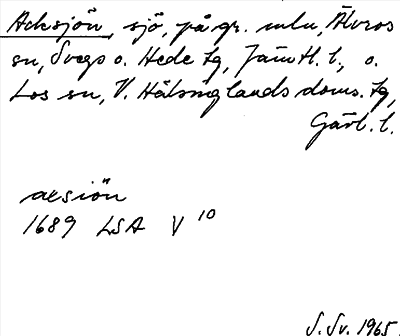 Acksjön, sjö, på gr. mlu, Älvros
sn, Svegs o. Hede tg, Jämtl. l., o.
Los sn, V. Hälsinglands doms. tg,
Gävl. l.
acsiön
1689 LSA V 10
S. Sv. 1965.